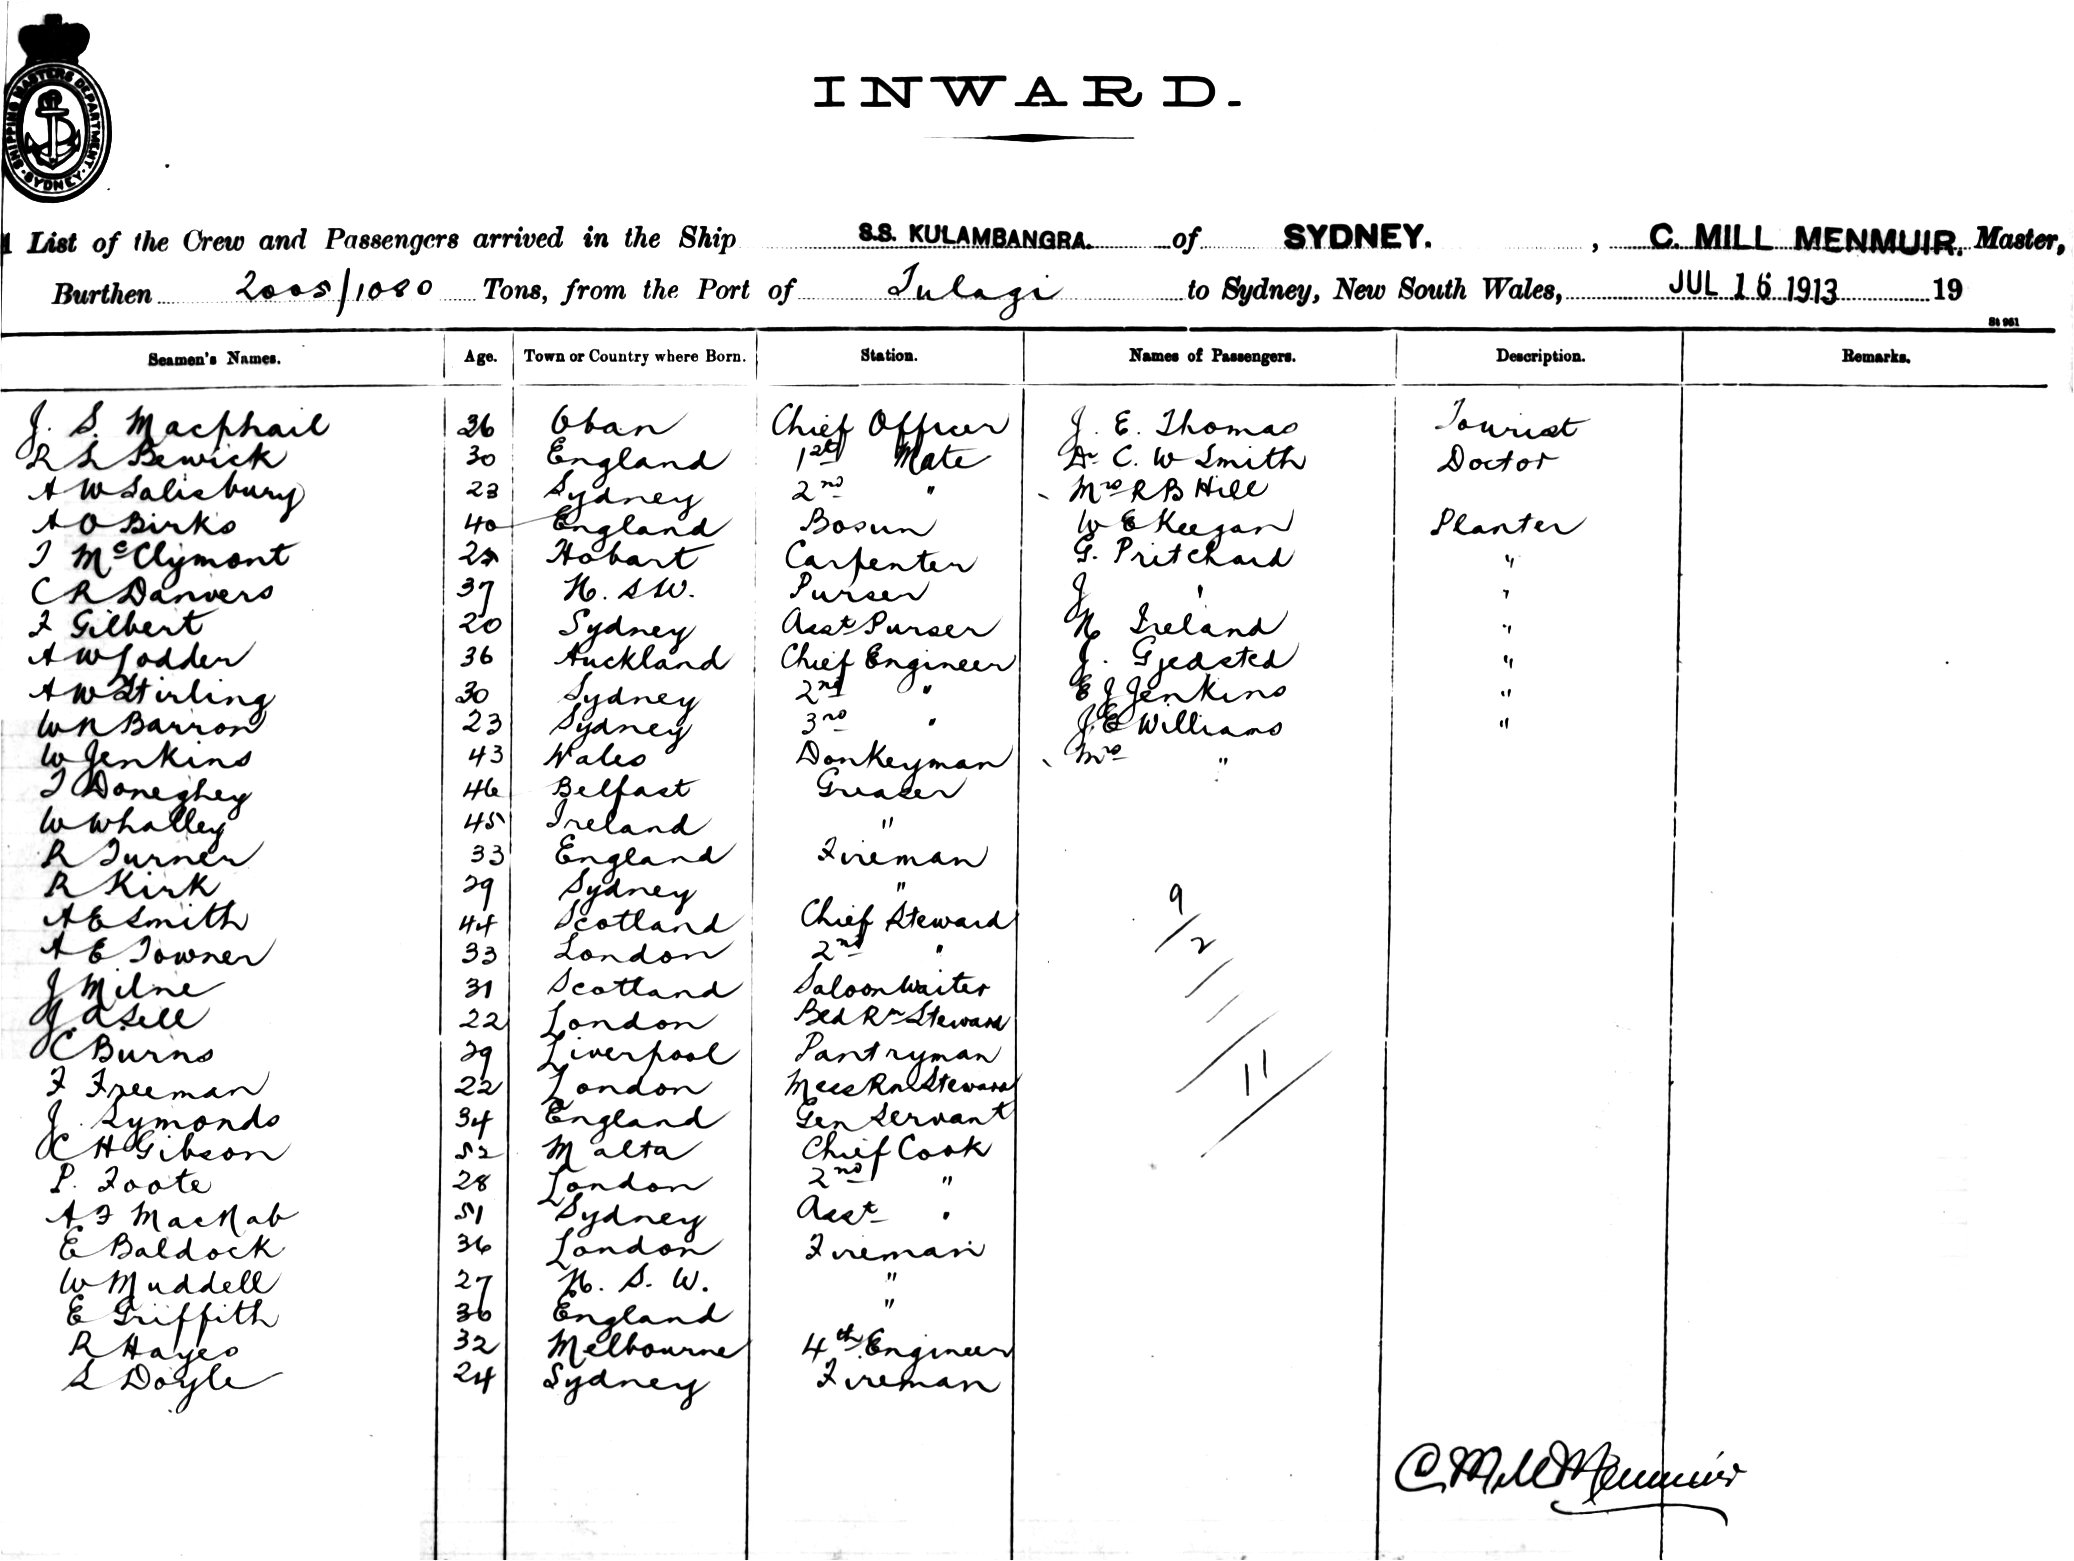 SHIPPING MASTERS DEPARTMENT. SYDNEY.
INWARD.
A List of the Crew and Passengers arrived in the Ship S.S. KULAMBANGRA. of SYDNEY. , C. MILL MENMUIR. Master,
Burthen 2005/1080 Tons, from the Port of Tulagi to Sydney, New South Wales, JUL 16 1913 19
St 961
Seamen's Names. Age. Town or Country where Born. Station. Names of Passengers. Description. Remarks.
J. S. Macphail 36 Oban Chief Officer J. E. Thomas Tourist
R S Bewick 30 England 1st Mate Dr C. W Smith Doctor
A W Salisbury 23 Sydney 2nd " Mrs R B Hill
A O Birks 40 England Bosun W E Keegan Planter
T McClymont Hobart Carpenter G. Pritchard "
C R Danvers 37 N. S W. Purser J " "
F Gilbert 20 Sydney Asst Purser N Ireland "
A W Lodder 36 Auckland Chief Engineer J. Gjedsted "
A W Stirling 30 Sydney 2nd " E J Jenkins "
W N Barron 23 Sydney 3rd " J. E Williams "
W Jenkins 43 Wales Donkeyman Mrs "
T Doneghey 46 Belfast Greaser
W Whalley 45 Ireland "
R Turner 33 England Fireman
R Kirk 29 Sydney "
A E Smith 44 Scotland Chief Steward 9
A E Towner 33 London 2nd " / 2
J Milne 31 Scotland Saloon Waiter
J. A Sell 22 London Bed Rm Steward
C Burns 29 Liverpool Pantryman
F Freeman 22 London Mess Rm Steward 11
J. Symonds 34 England Gen Servant
C H Gibson 52 Malta Chief Cook
P. Foote 28 London 2nd "
A F MacNab 51 Sydney Asst "
E Baldock 36 London Fireman
W Muddell 27 N. S. W. "
E Griffith 36 England "
R Hayes 32 Melbourne 4th Engineer
S Doyle 24 Sydney Fireman
C Mill Menmuir